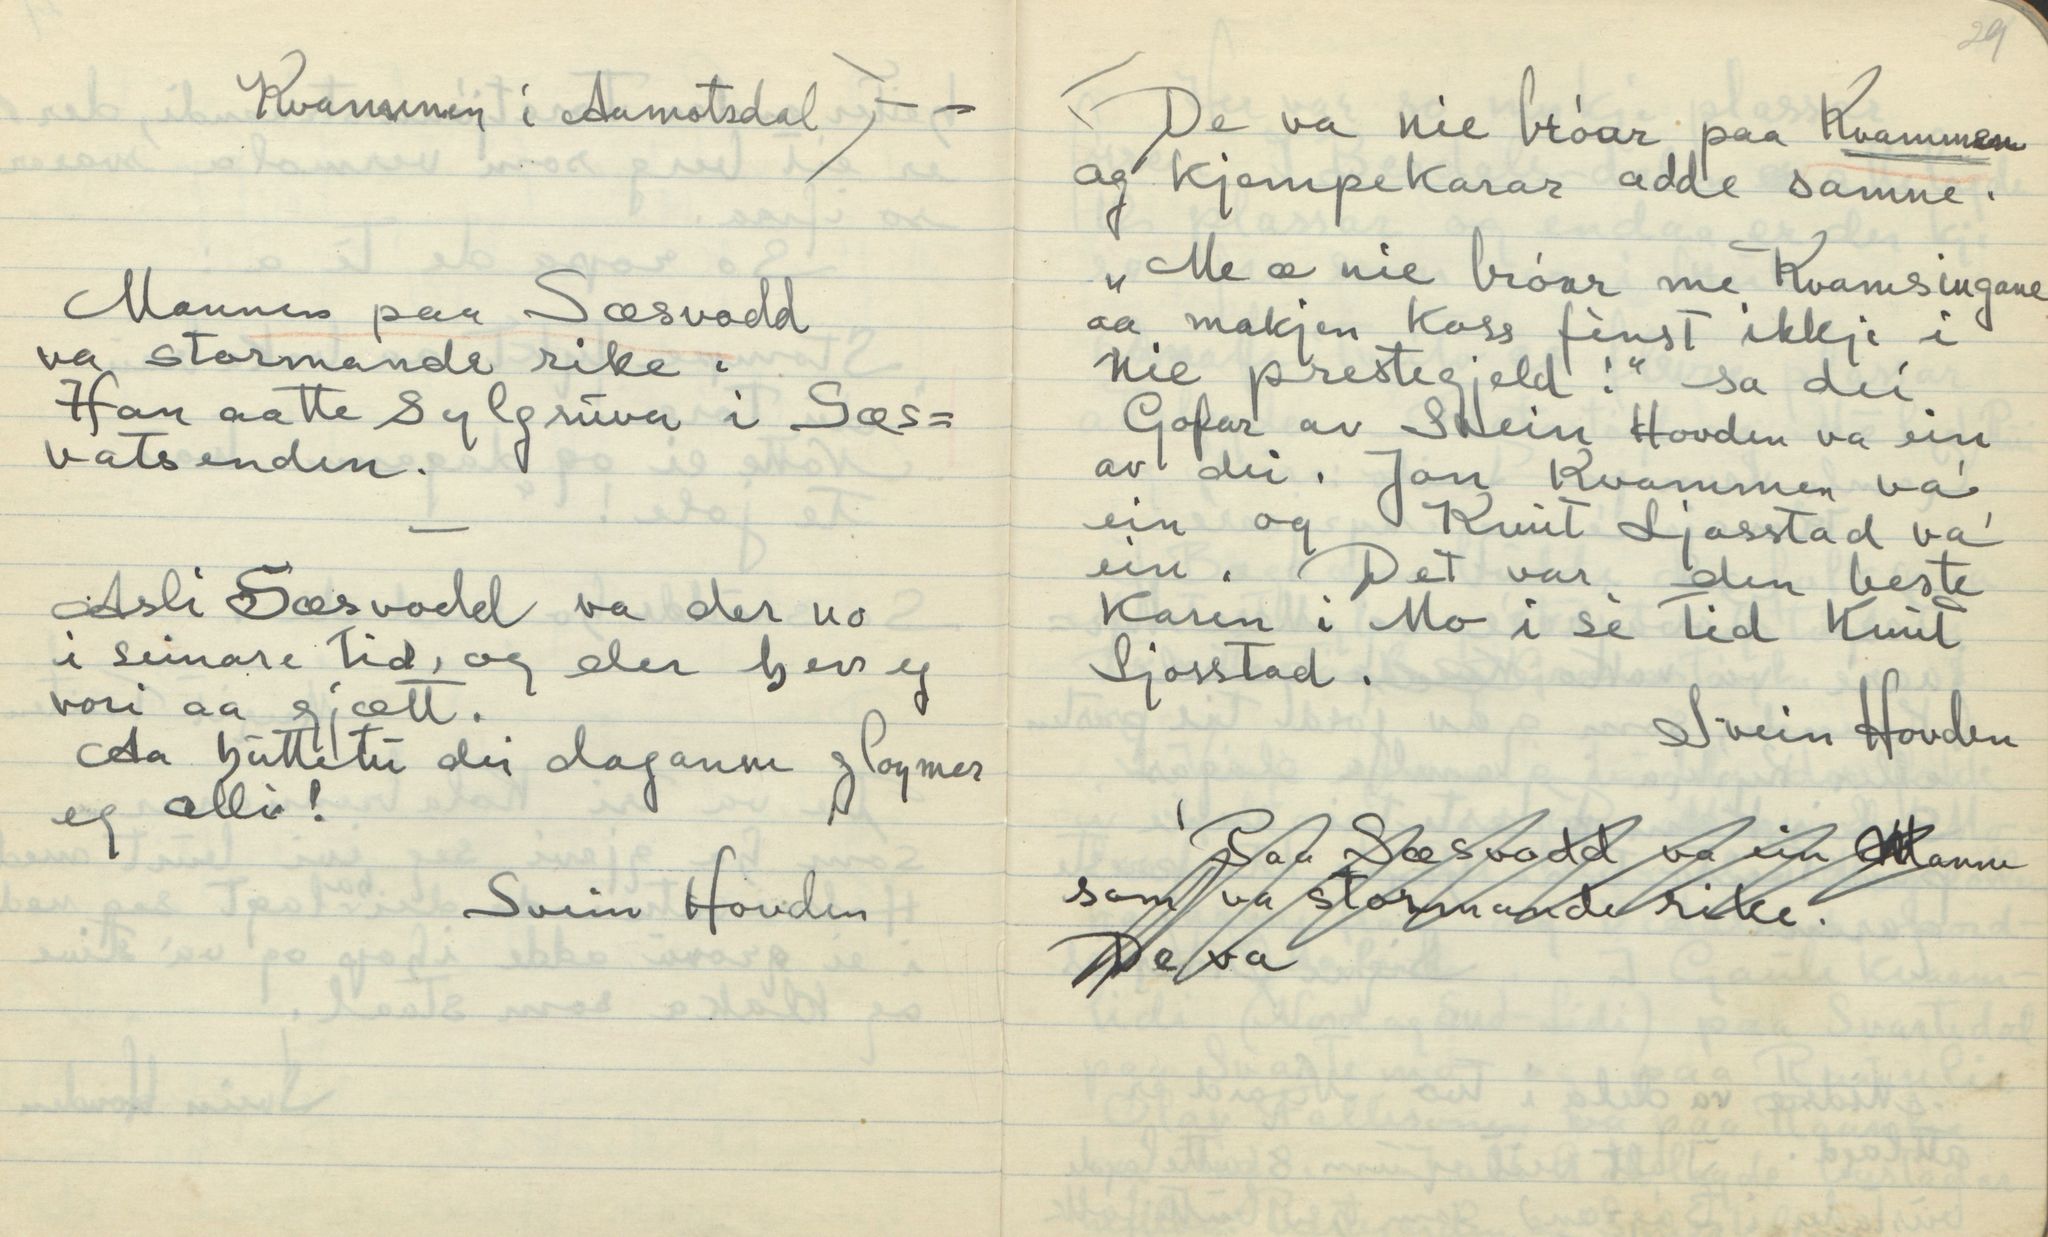 Kvammen i Aamotsdal) - -
Mannen paa Sæsvadd
va stormande rike.
Han aatte Sylgrúva i Sæs=
vatsenden.
—
Asli Sæsvadd va der no
i seinare tid, og der hev eg
vori aa gjætt.
Aa húttetú dei daganne gløymer
eg alli!
Svein Hovden
29
De va nie bróar paa Kvammen
og kjempekarar adde samne.
"Me æ nie bróar me Kvamsingane
aa makjen kass finst ikkje i
nie prestegjeld!" sa dei
Gofar av Svein Hovden va ein
av dei. Jon Kvammen va
ein og Knút Ljosstad va
ein. Det var den beste
Karen i Mo i sè tid Knút
Ljosstad.
Svein Hovden
Paa Sæsvadd va ein Mann
som va stormande rike.
De va